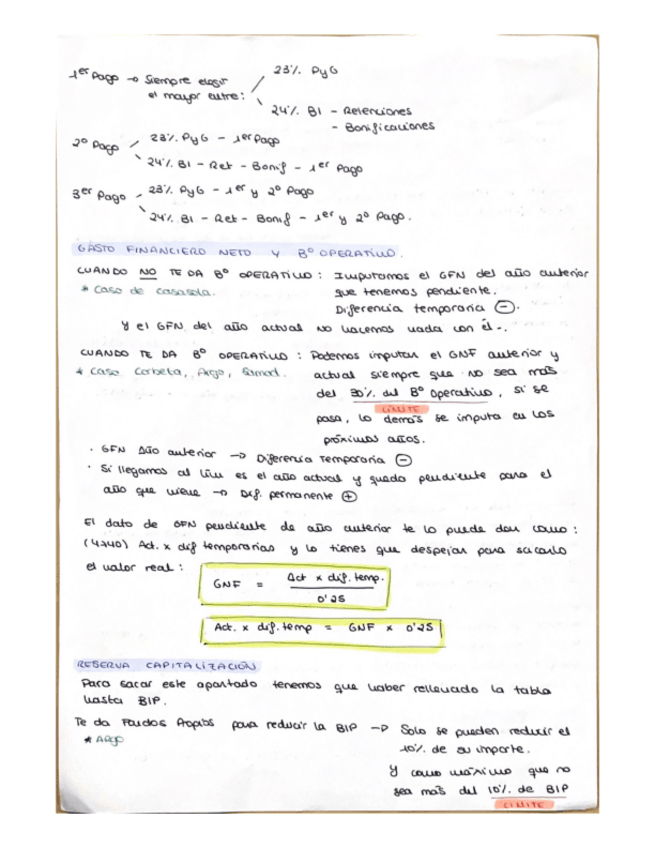 1er Pago → Siempre elegir el mayor entre:
23% PyG
24% BI - Retenciones
- Bonificaciones
2º Pago
23% PyG - 1er Pago
24% BI - Ret - Bonif - 1er Pago
3er Pago
23% PyG - 1er y 2º Pago
24% BI - Ret - Bonif - 1er y 2º Pago.
GASTO FINANCIERO NETO Y Bº OPERATIVO.
CUANDO NO TE DA Bº OPERATIVO : Imputamos el GFN del año anterior
* Caso de Casasola.
que tenemos pendiente.
Diferencia temporaria ⊖.
Y el GFN del año actual no hacemos nada con él.
CUANDO TE DA Bº OPERATIVO : Podemos imputar el GNF anterior y
* Caso Corbeta, Argo,
actual siempre que no sea más
del 30% del Bº Operativo, si se
LÍMITE
pasa, lo demás se imputa en los
próximos años.
· GFN Año anterior → Diferencia Temporaria ⊖
· Si llegamos al lím es el año actual y queda pendiente para el
año que viene → Dif. permanente ⊕
El dato de GFN pendiente de año anterior te lo puede dar como :
(4740) Act. x dif temporarias y lo tienes que despejar para sacarlo
el valor real :
GNF = Act x dif. temp. / 0'25
Act. x dif. temp = GNF x 0'25
RESERVA CAPITALIZACIÓN
Para sacar este apartado tenemos que haber rellenado la tabla
hasta BIP.
Te da Fondos Propios para reducir la BIP → Solo se pueden reducir el
* Argo
10% de su importe.
Y como máximo que no
sea más del 10% de BIP
LÍMITE